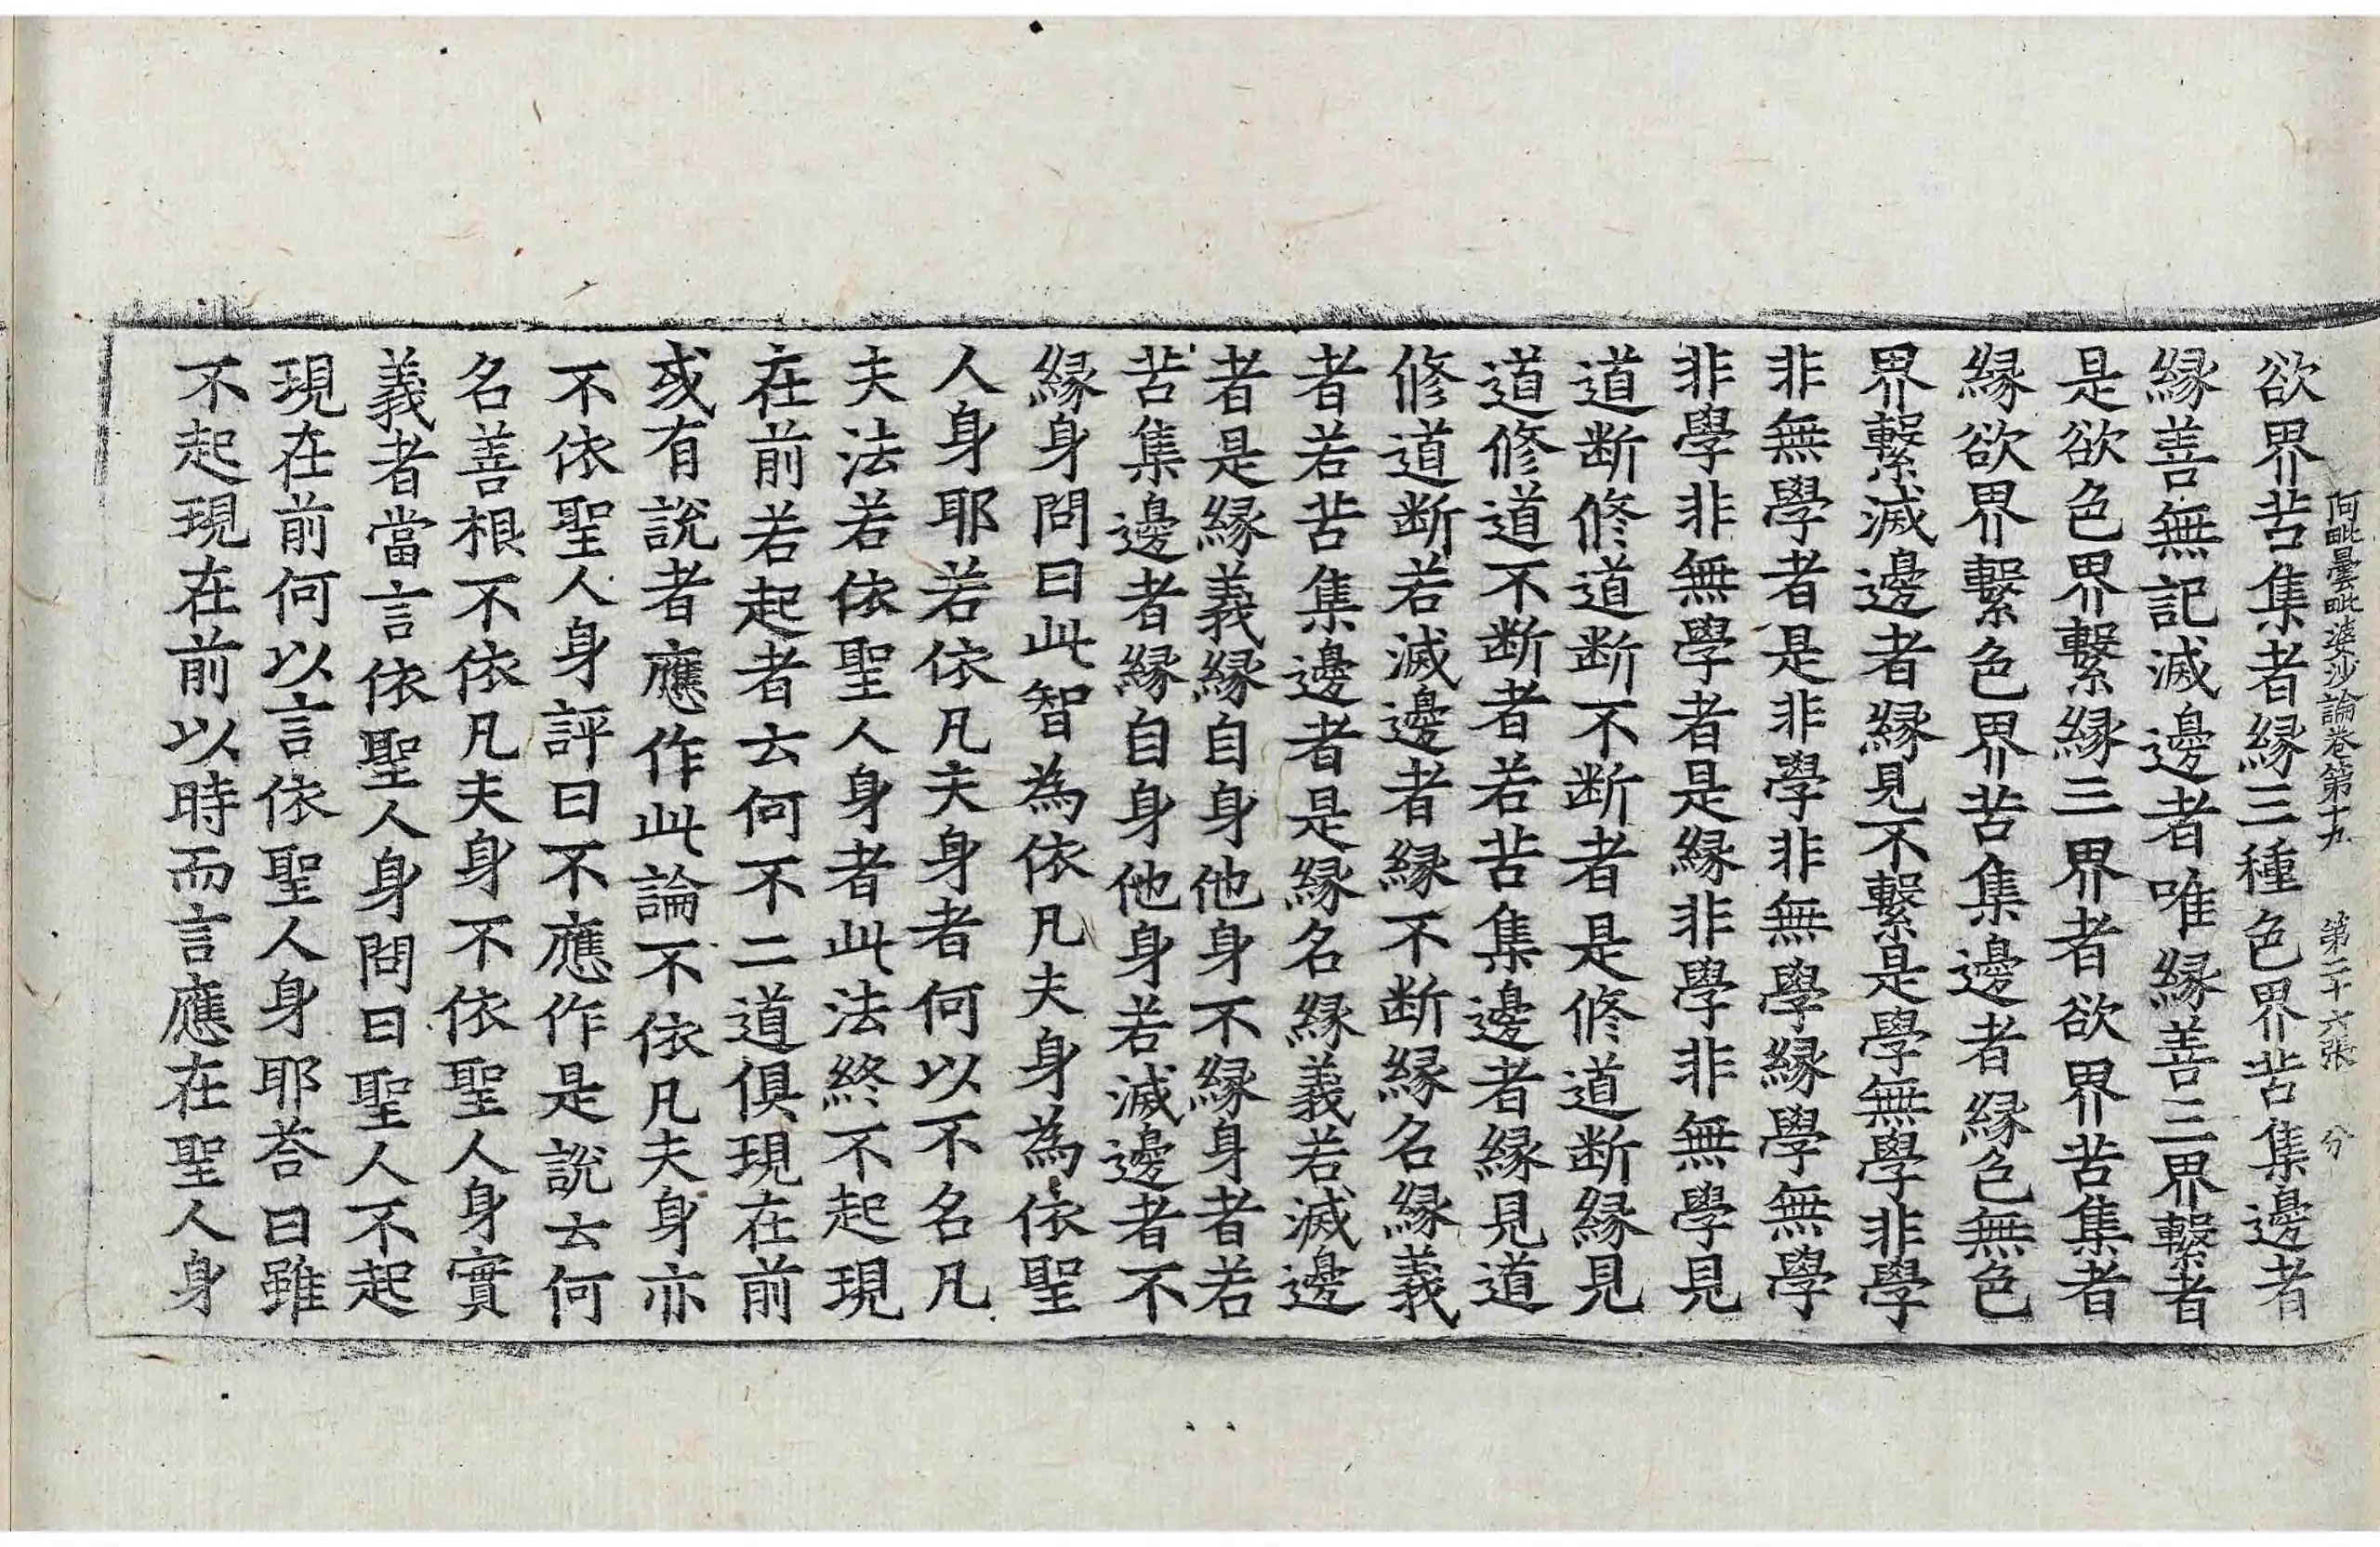 阿毗曇毗婆沙論卷第十九　第二十六張　分
欲界苦集者緣三種色界苦集邊者
緣善無記滅邊者唯緣善三界繫者
是欲色界繫緣三界者欲界苦集者
緣欲界繫色界苦集邊者緣色無色
界繫滅邊者緣見不繫是學無學非學
非無學者是非學非無學緣學無學
非學非無學者是緣非學非無學見
道断修道断不断者是修道断緣見
道修道不断者若苦集邊者緣見道
修道断若滅邊者緣不断緣名緣義
者若苦集邊者是緣名緣義若滅邊
者是緣義緣自身他身不緣身者若
苦集邊者緣自身他身若滅邊者不
緣身問曰此智為依凡夫身為依聖
人身耶若依凡夫身者何以不名凡
夫法若依聖人身者此法終不起現
在前若起者云何不二道俱現在前
或有說者應作此論不依凡夫身亦
不依聖人身評曰不應作是說云何
名善根不依凡夫身不依聖人身實
義者當言依聖人身問曰聖人不起
現在前何以言依聖人身耶荅曰雖
不起現在前以時而言應在聖人身